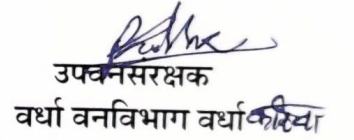 उपवनसंरक्षक
वर्धा वनविभाग वर्धा करिता